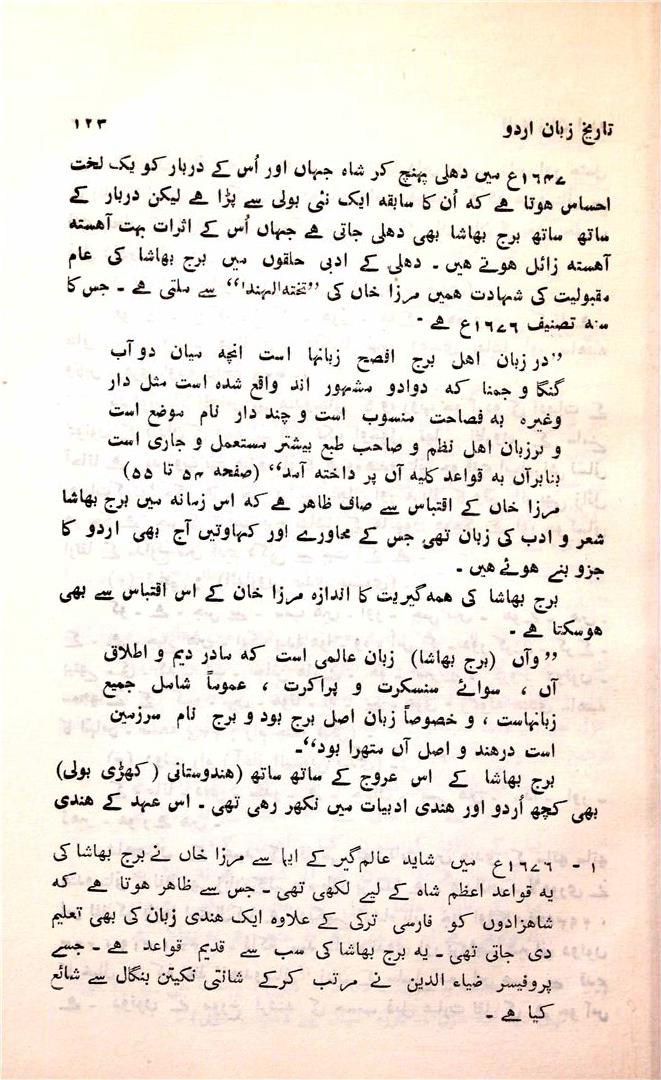 تاریخ زبان اردو ۱۲۳
۱۶۴۷ع میں دھلی پہنچ کر شاہ جہاں اور اُس کے دربار کو یک لخت
احساس ھوتا ھے کہ اُن کا سابقہ ایک نئی بولی سے پڑا ھے لیکن دربار کے
ساتھ ساتھ برج بھاشا بھی دھلی جاتی ھے جہاں اُس کے اثرات بہت آھستہ
آھستہ زائل ھوتے ھیں ۔ دھلی کے ادبی حلقوں میں برج بھاشا کی عام
مقبولیت کی شہادت ھمیں مرزا خاں کی ”تحفتہ الہند“ سے ملتی ھے ۔ جس کا
سنہ تصنیف ۱۶۷۶ع ھے ۔
”در زبان اھل برج افصح زبانھا است انچہ میان دو آب
گنگا و جمنا کہ دوادو مشہور اند واقع شدہ است مثل دار
وغیرہ بہ فصاحت منسوب است و چند دار نام موضع است
و برزبان اھل نظم و صاحب طبع بیشتر مستعمل و جاری است
بنابرآں بہ قواعد کلیہ آں پر داختہ آمد“ (صفحہ ۵۴ تا ۵۵)
مرزا خاں کے اقتباس سے صاف ظاھر ھے کہ اس زمانہ میں برج بھاشا
شعر و ادب کی زبان تھی جس کے محاورے اور کہاوتیں آج بھی اردو کا
جزو بنے ھوئے ھیں ۔
برج بھاشا کی ھمہ گیریت کا اندازہ مرزا خان کے اس اقتباس سے بھی
ھوسکتا ھے ۔
”وآں (برج بھاشا) زبان عالمی است کہ مادر دیم و اطلاق
آں ، سوائے سنسکرت و پراکرت ، عموماً شامل جمیع
زبانہاست ، و خصوصاً زبان اصل برج بود و برج نام سرزمین
است درھند و اصل آں متھرا بود“۔
برج بھاشا کے اس عروج کے ساتھ ساتھ (ھندوستانی (کھڑی بولی)
بھی کچھ اُردو اور ھندی ادبیات میں نکھر رھی تھی ۔ اس عہد کے ھندی
۱ - ۱۶۷۶ع میں شاید عالم گیر کے ایما سے مرزا خاں نے برج بھاشا کی
یہ قواعد اعظم شاہ کے لیے لکھی تھی ۔ جس سے ظاھر ھوتا ھے کہ
شاھزادوں کو فارسی ترکی کے علاوہ ایک ھندی زبان کی بھی تعلیم
دی جاتی تھی ۔ یہ برج بھاشا کی سب سے قدیم قواعد ھے ۔ جسے
پروفیسر ضیاء الدین نے مرتب کرکے شانتی نکیتن بنگال سے شائع
کیا ھے ۔